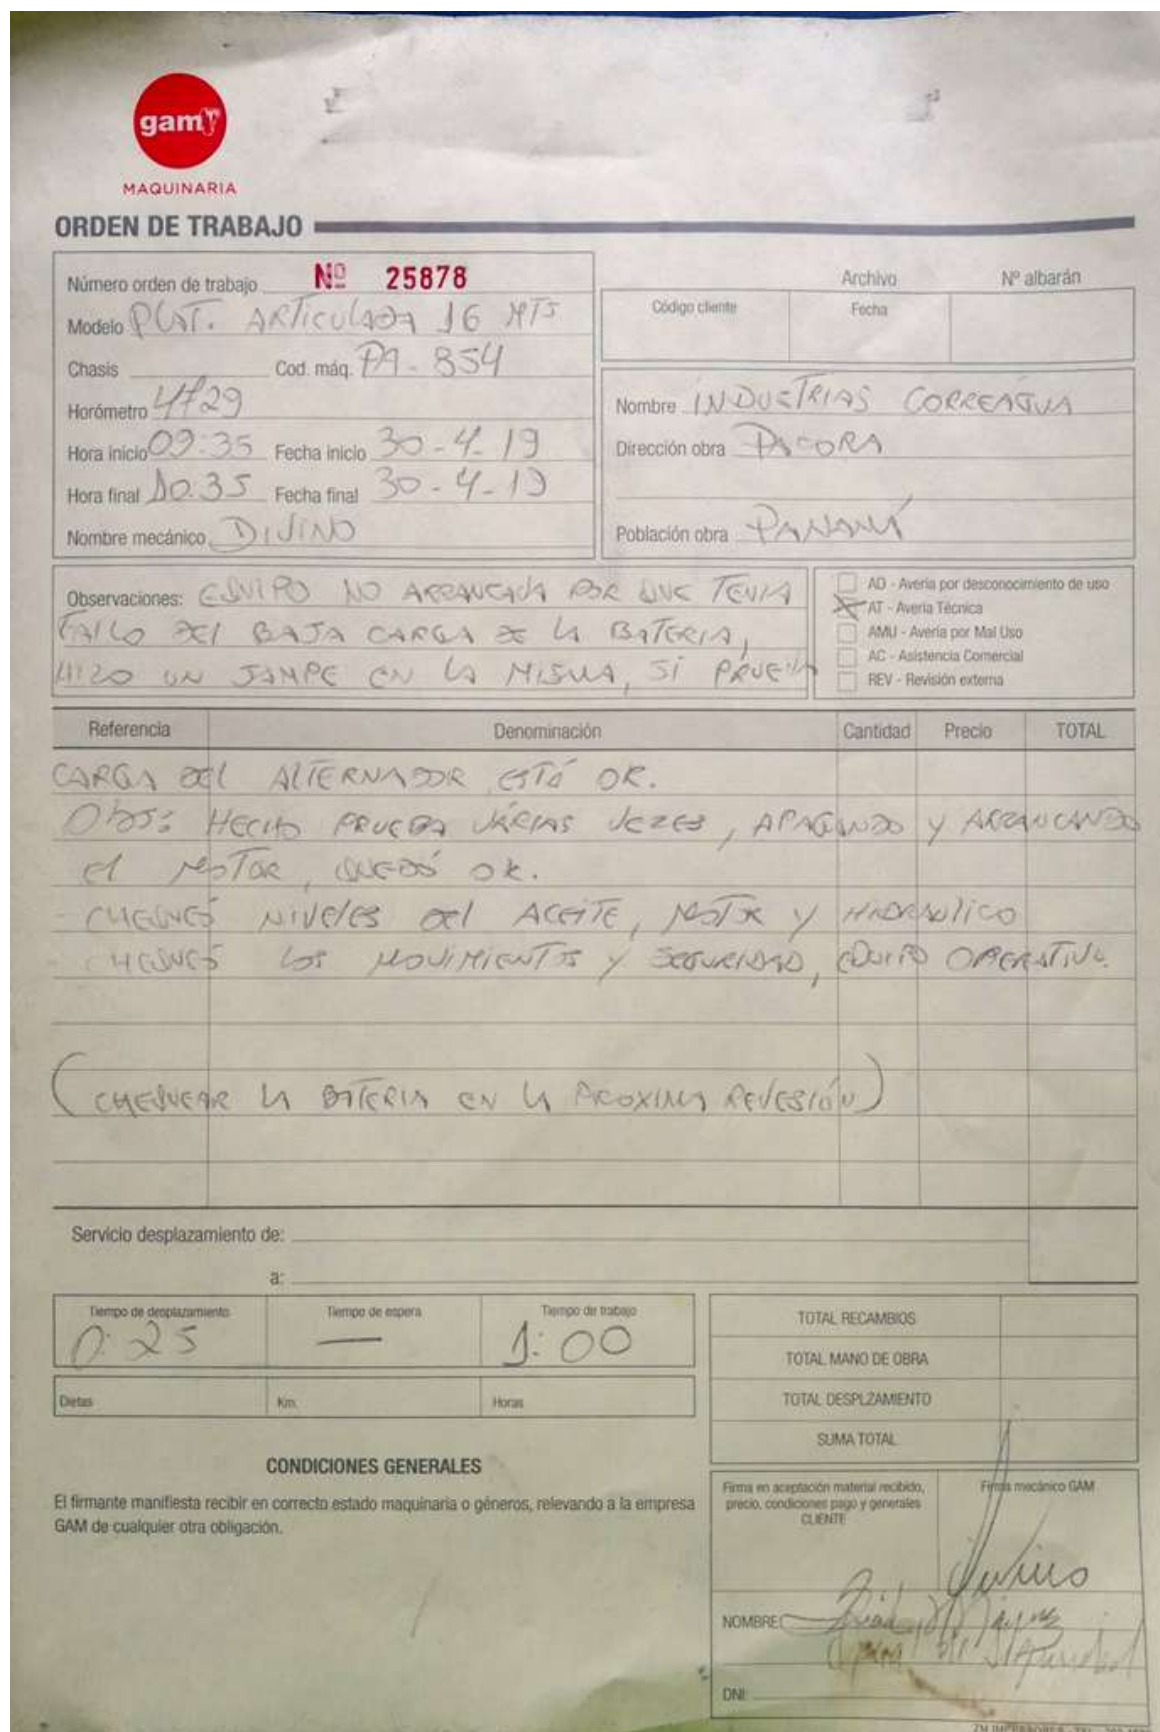 gam
MAQUINARIA
ORDEN DE TRABAJO
Número orden de trabajo Nº 25878
Modelo PLAT. ARTICULADA 16 MTS
Chasis Cod. máq. PA-854
Horómetro 4729
Hora inicio 09:35 Fecha inicio 30-4-19
Hora final 10:35 Fecha final 30-4-19
Nombre mecánico DIVINO
Archivo Nº albarán
Código cliente Fecha
Nombre INDUSTRIAS CORREAGUA
Dirección obra PACORA
Población obra PANAMÁ
Observaciones: EQUIPO NO ARRANCAVA POR QUE TENIA
FALLO DEL BAJA CARGA DE LA BATERIA,
HIZO UN JAMPE EN LA MISMA, SI PRUEBA
AD - Avería por desconocimiento de uso
AT - Avería Técnica
AMU - Avería por Mal Uso
AC - Asistencia Comercial
REV - Revisión externa
Referencia Denominación Cantidad Precio TOTAL
CARGA DEL ALTERNADOR ESTÁ OK.
Obs: HECHO PRUEBA VÁRIAS VEZES, APAGANDO y ARRANCANDO
el MOTOR, QUEDÓ OK.
- CHEQUEÓ NIVELES DEL ACEITE, MOTOR y HIDRAULICO
- CHEQUEÓ LOS MOVIMIENTOS y SEGURIDAD, EQUIPO OPERATIVO.
(CHEQUEAR LA BATERIA EN LA PROXIMA REVESIÓN)
Servicio desplazamiento de:
a:
Tiempo de desplazamiento Tiempo de espera Tiempo de trabajo
0:25 — 1:00
Dietas Km. Horas
TOTAL RECAMBIOS
TOTAL MANO DE OBRA
TOTAL DESPLZAMIENTO
SUMA TOTAL
CONDICIONES GENERALES
El firmante manifiesta recibir en correcto estado maquinaria o géneros, relevando a la empresa
GAM de cualquier otra obligación.
Firma en aceptación material recibido,
precio, condiciones pago y generales
CLIENTE
Firma mecánico GAM
Divino
NOMBRE:
DNI: